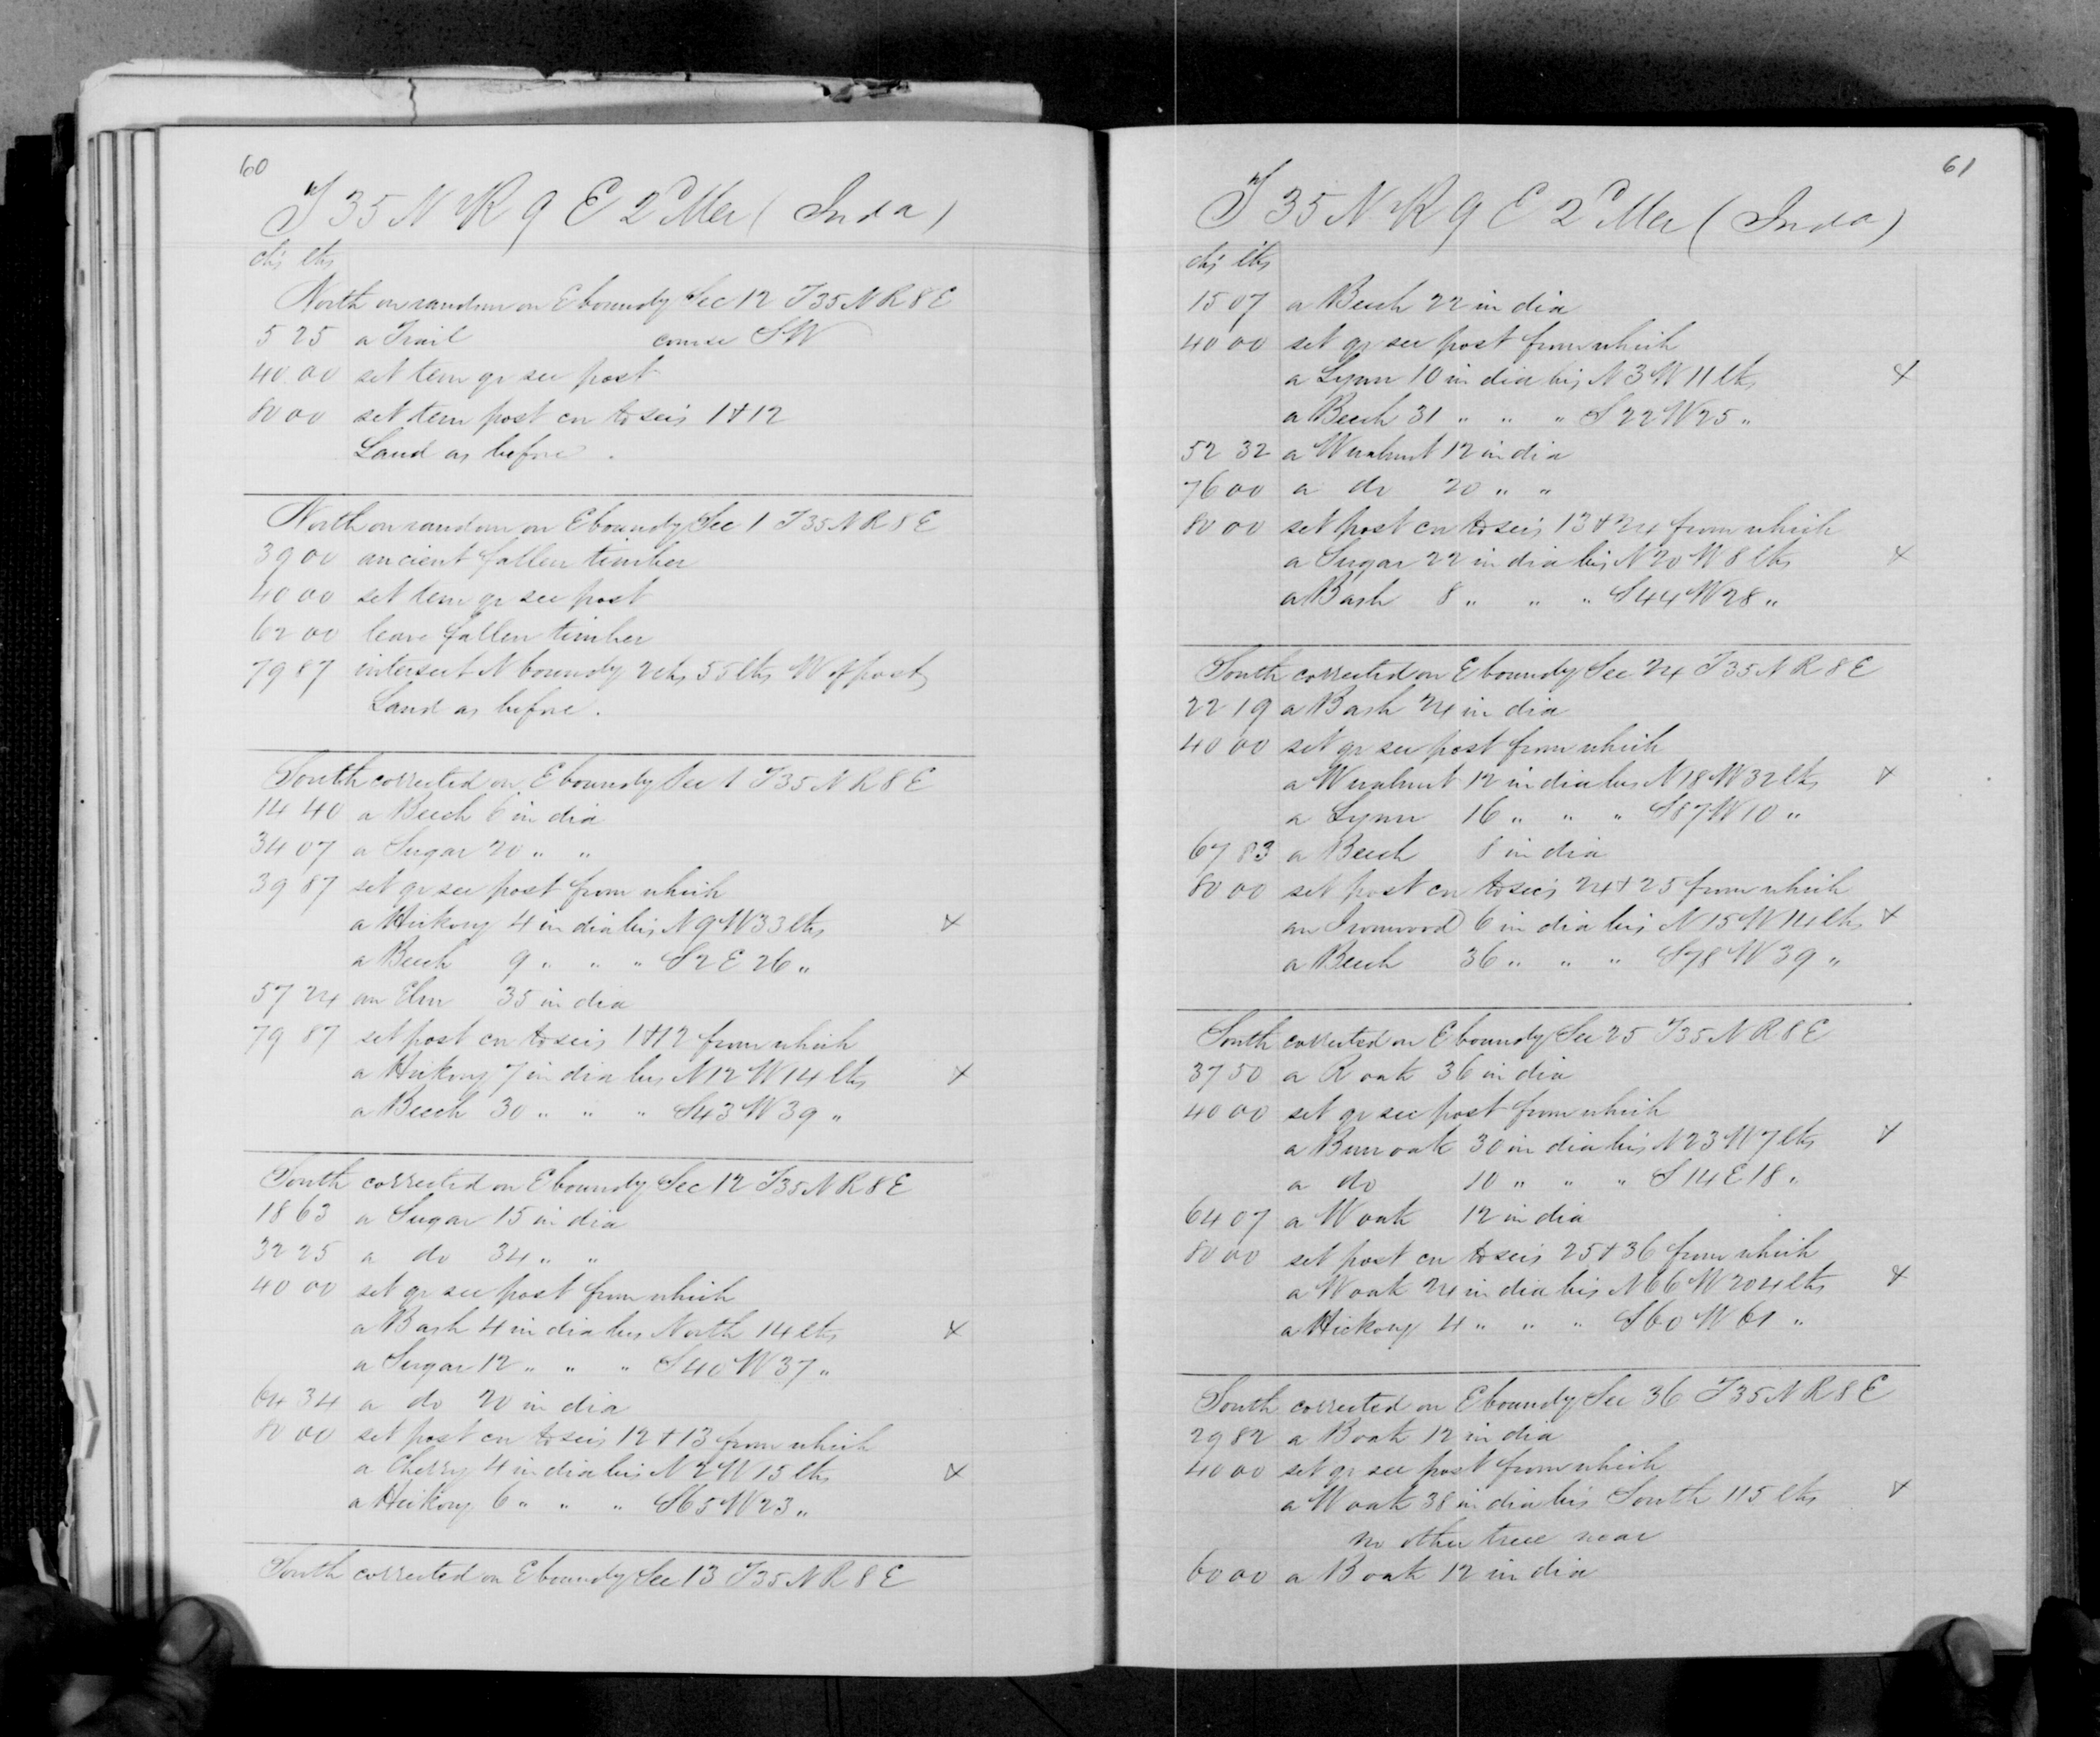 60
T 35 N R 9 E 2d Mer (Inda)
chs lks
North on random on E boundy Sec 12 T35 N R 8 E
5 25 a Trail course SW
40.00 set tem qr sec post
80 00 set tem post cn to secs 1+12
Land as before.
North on random on E boundy Sec 1 T35 N R 8 E
39 00 ancient fallen timber
40 00 set tem qr sec post
62 00 leave fallen timber
79 87 intersect N boundy 2 chs 55 lks W of post
Land as before.
South corrected on E boundy Sec 1 T35 N R 8 E
14 40 a Beech 6 in dia
34 07 a Sugar 20 " "
39 87 set qr sec post from which
a Hickory 4 in dia brs N 9 W 33 lks x
a Beech 9 " " " S 2 E 26 "
57 24 an Elm 35 in dia
79 87 set post cn to secs 1+12 from which
a Hickory 7 in dia brs N 12 W 14 lks x
a Beech 30 " " " S 43 W 39 "
South corrected on E boundy Sec 12 T35 N R 8 E
18 63 a Sugar 15 in dia
32 25 a do 34 " "
40 00 set qr sec post from which
a B ash 4 in dia brs North 14 lks x
a Sugar 12 " " " S 40 W 37 "
64 34 a do 20 in dia
80 00 set post cn to secs 12+13 from which
a Cherry 4 in dia brs N 2 W 15 lks x
a Hickory 6 " " " S 65 W 23 "
South corrected on E boundy Sec 13 T35 N R 8 E
61
T 35 N R 9 E 2d Mer (Inda)
chs lks
15 07 a Beech 22 in dia
40 00 set qr sec post from which
a Lynn 10 in dia brs N 3 W 11 lks x
a Beech 31 " " " S 22 W 25 "
52 32 a W walnut 12 in dia
76 00 a do 20 " "
80 00 set post cn to secs 13+24 from which
a Sugar 22 in dia brs N 20 W 8 lks x
a B ash 8 " " " S 44 W 28 "
South corrected on E boundy Sec 24 T35 N R 8 E
22 19 a B ash 24 in dia
40 00 set qr sec post from which
a W walnut 12 in dia brs N 18 W 32 lks x
a Lynn 16 " " " S 87 W 10 "
67 83 a Beech 8 in dia
80 00 set post cn to secs 24+25 from which
an Ironwood 6 in dia brs N 15 W 14 lks x
a Beech 36 " " " S 78 W 39 "
South corrected on E boundy Sec 25 T35 N R 8 E
37 50 a R oak 36 in dia
40 00 set qr sec post from which
a Burr oak 30 in dia brs N 23 W 7 lks x
a do 10 " " " S 14 E 18 "
64 07 a W oak 12 in dia
80 00 set post cn to secs 25+36 from which
a W oak 24 in dia brs N 66 W 204 lks x
a Hickory 4 " " " S 60 W 61 "
South corrected on E boundy Sec 36 T35 N R 8 E
29 82 a B oak 12 in dia
40 00 set qr sec post from which
a W oak 38 in dia brs South 115 lks x
no other tree near
60 00 a B oak 12 in dia